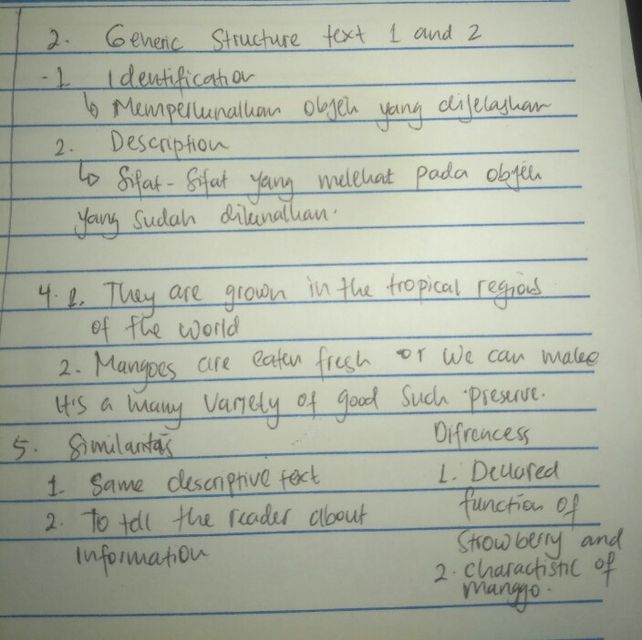 2. Generic Structure text 1 and 2
-1 Identification
↳ Memperkenalkan objek yang dijelaskan
2. Description
↳ Sifat-Sifat yang melekat pada objek
yang sudah dikenalkan.
4. 1. They are grown in the tropical regions
of the world
2. Mangoes are eaten fresh or we can make
it's a many variety of good such preserve.
5. Similaritas
1. Same descriptive text
2. To tell the reader about
Information
Difrencess
1. Declared
function of
Strowberry and
2. charactistic of
manggo.